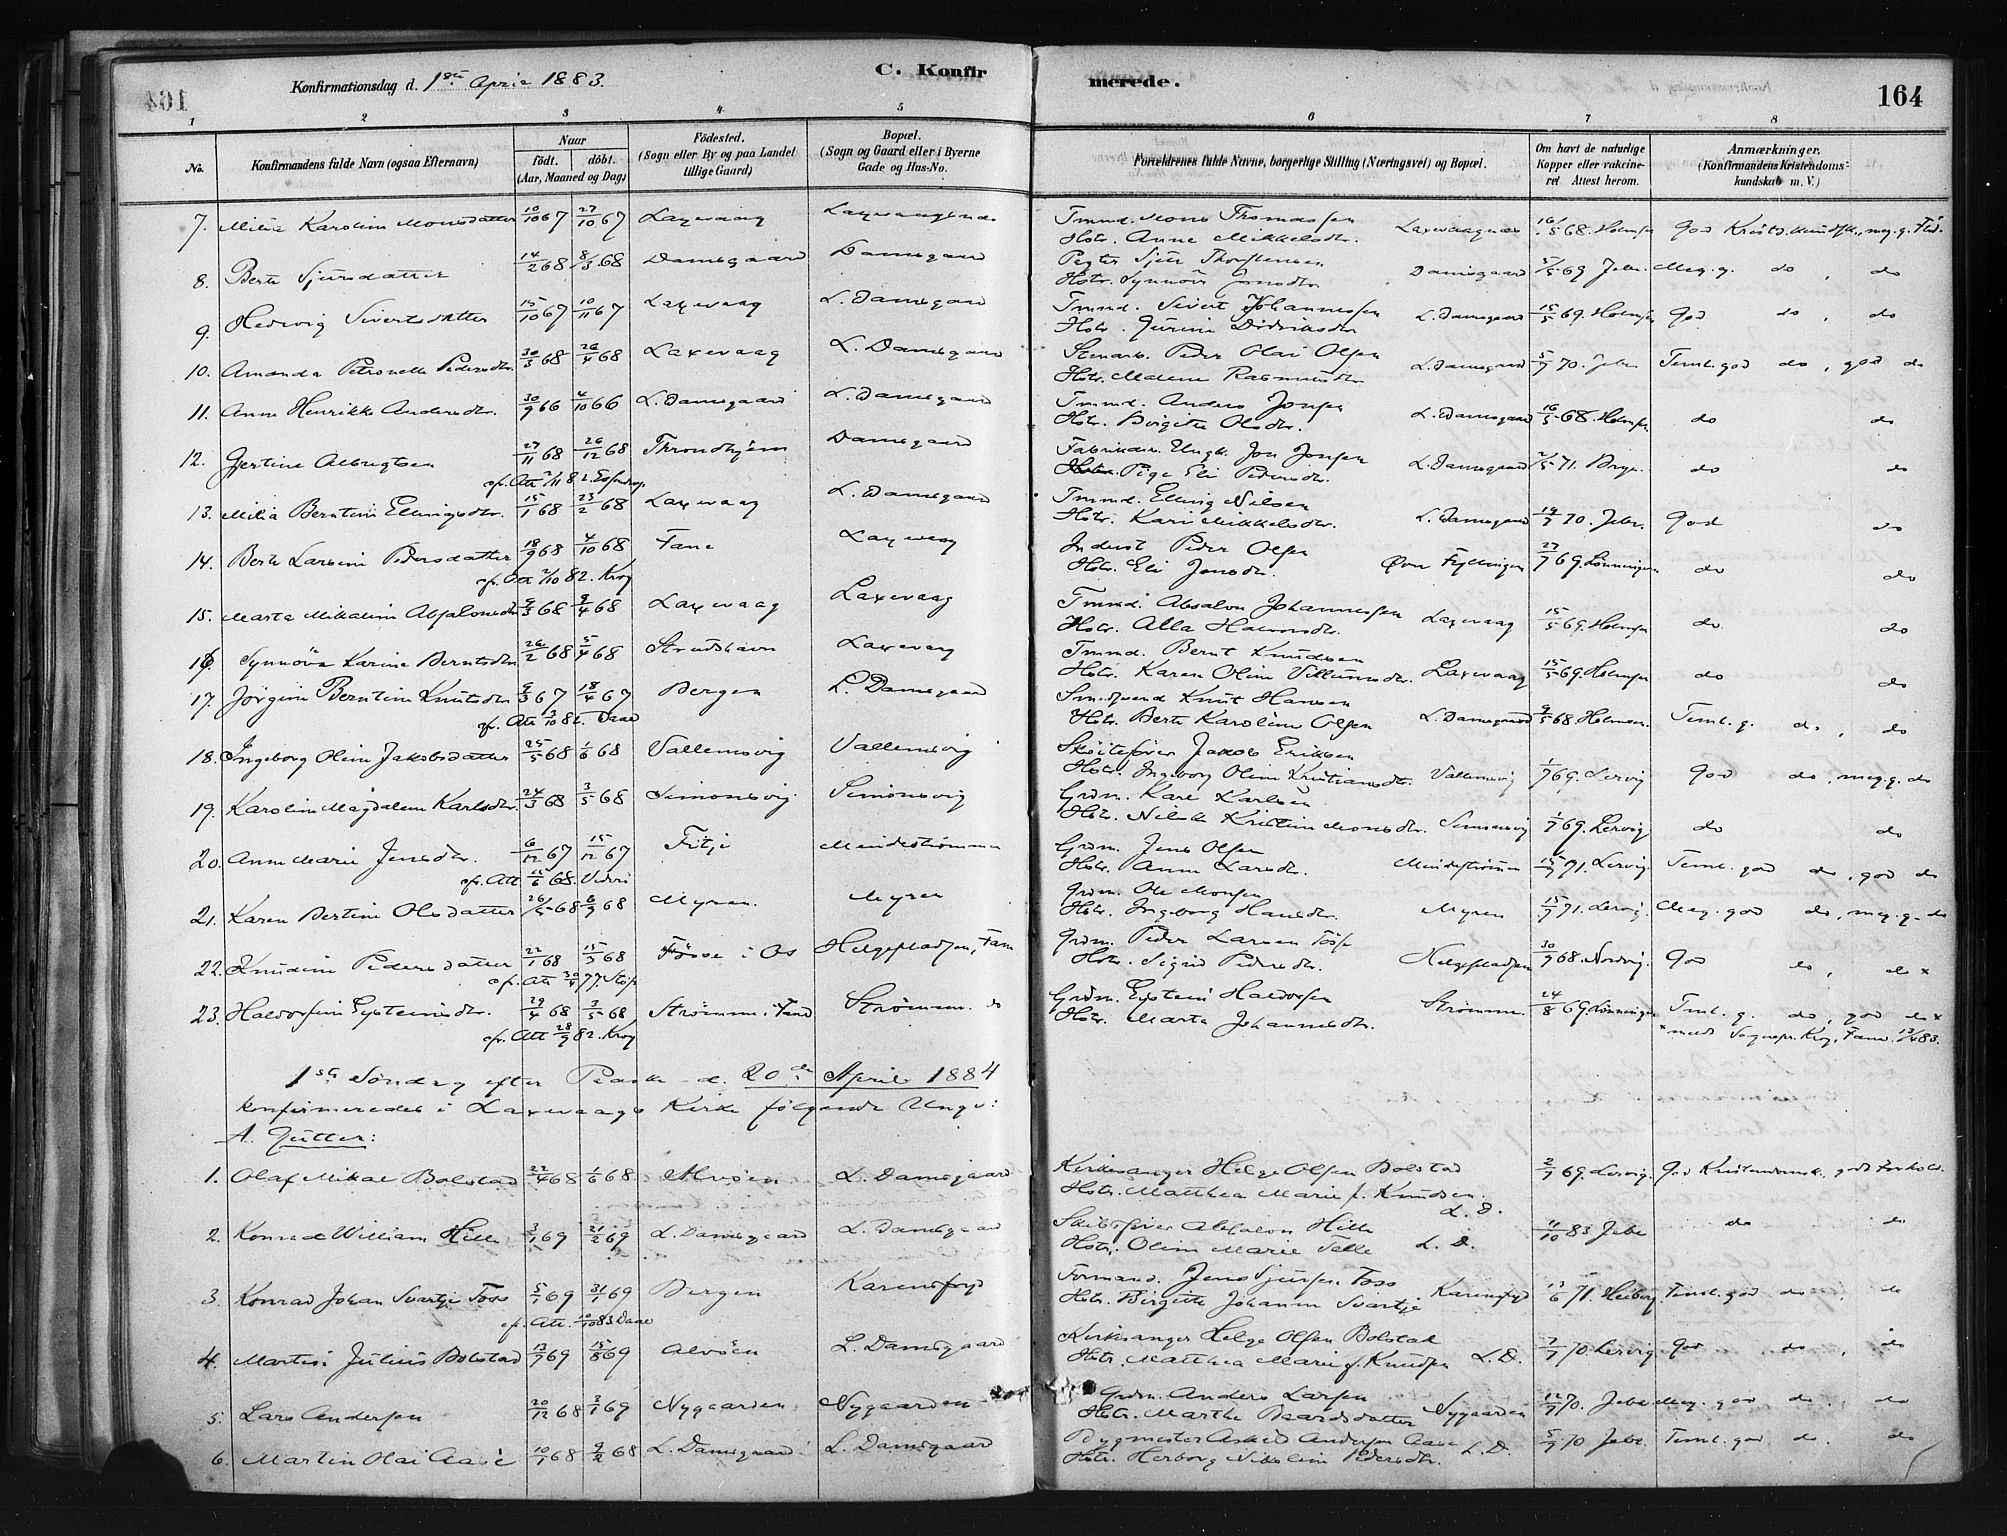 Konfirmationsdag d. 1ste April 1883.
C. Konfirmerede.
164
1 2 3 4 5 6 7 8
No.
Konfirmandens fulde Navn (ogsaa Efternavn)
Naar
födt. döbt.
(Aar, Maaned og Dag)
Födested.
(Sogn eller By og paa Landet
tillige Gaard)
Bopæl.
(Sogn og Gaard eller i Byerne
Gade og Hus-No.
Forældrenes fulde Navne, borgerlige Stilling (Næringsvei) og Bopæl.
Om havt de naturlige
Kopper eller vakcine-
ret Attest herom.
Anmærkninger.
(Konfirmandens Kristendoms-
kundskab m. V.)
7. Milia Karolim Monsdatter 10/10 67 27/10 67 Laxevaag Tmmd. Mons Thomassen
Hstr. Anne Mikkelsdtr. 16/5 68. Holmsen
8. Berte Sjursdatter 14/2 68 8/3 68 Damsgaard Damsgaard Sjur Thorstensen
Hstr. Synnöv Jonsdtr. Damsgaard 5/5 69 Jebe. Meg. g. do, do
9. Hedvig Sivertsdatter 15/10 67 10/11 67 Laxevaag L. Damsgaard Tmmd. Sivert Johannessen
Hstr. Jürine Didriksdtr L. Damsgaard 15/5 69. Holmsen God do, do
10. Amanda Petronelle Pedersdtr. 30/3 68 26/4 68 Laxevaag L. Damsgaard Peder Olai Olsen
Hstr. Malene Rasmusdtr L. Damsgaard 5/7 70. Jebe. Teml. god do, god do
11. Anne Henrikke Andersdtr. 30/9 66 4/10 66 L. Damsgaard L. Damsgaard Tmmd. Anders Jonsen
Hstr. Birgitte Olsdtr. L. Damsgaard 16/5 68. Holmsen do do
12. Gjertine Albregtsen 27/11 68 26/12 68 Throndhjem Damsgaard Ungk. Jon Jonsen
Pige Eli Pedersdtr. L. Damsgaard do do
13. Milia Berntine Ellingsdtr. 15/1 68 23/2 68 Laxevaag L. Damsgaard Tmmd. Elling Nilsen
Hstr. Kari Mikkelsdtr. L. Damsgaard 70. Jebe. God do
14. Berte Larsine Pedersdatter 18/9 68 4/10 68 Fane Laxevaag Inderst Peder Olsen
Hstr. Eli Jonsdtr. Øvre Fyllingen 27/7 69. Lönningen do do
cfr. Att 2/10 82. Krog
15. Marta Mikaline Absalonsdtr 9/3 68 9/4 68 Laxevaag Laxevaag Tmmd. Absalon Johannessen
Hstr. Alla Laxevaag 15/5 69. Holmsen do do
16. Synnöva Karine Berntsdtr 26/2 68 5/4 68 Strudshavn Laxevaag Tmmd. Bernt Knudsen
Hstr. Karen Oline Villumsdtr. Laxevaag 15/5 69. Holmsen do do
17. Jörgine Berntine Knutsdtr 9/3 67 18/4 67 Bergen L. Damsgaard Smedsvend Knut Hansen
Hstr. Berte Karoline Olsen L. Damsgaard 9/5 68 Holmsen. Teml. g. do, do
cfr. Att 3/10 82. Daae
18. Ingeborg Oline Jakobsdatter 25/5 68 1/6 68 Vallemsvig Vallemsvig Sköitefører Jakob Eriksen
Hstr. Ingeborg Oline Kristiansdtr Vallemsvig 1/7 69. Lervig God do, meg. g. do
19. Karoline Magdalene Karlsdtr. 24/3 68 3/5 68 Simonsvig Simonsvig Grdm. Karl Karlsen
Hstr. Nilsk Kristine Monsdtr. Simonsvig 1/7 69. Lervig do do
20. Anne Marie Jensdtr. 6/12 67 15/12 67 Fitje Mindestrømmen Grdm. Jens Olsen
Hstr. Anna Larsdtr. Mindestrømmen 15/7 71. Lervig. Teml. god do, god do
21. Karen Bertine Olsdatter 26/5 68 6/9 68 Myren. Myren Grdm. Ole Monsen
Hstr. Ingeborg Hansdtr. Myren 15/7 71. Lervig. Meg. god do, meg. g. do
22. Knudine Pedersdatter 22/1 68 15/3 68 i Os Helgepladsen, Fane Grdm. Peder Larsen
Hstr. Sigrid Pedersdtr. Helgepladsen 30/9 68. Nordvig. God do, do ×
23. Haldorsine Eysteinsdtr. 29/4 68 3/5 68 Strømme i Fane Strømmen. do Grdm. Eystein Haldorsen
Hstr. Marta Johannesdtr. Strømme. 24/8 69. Lönningen Teml. g. do, god do ×
cfr. Att 28/9 82. Krog
× meldt Sognepr. Krog, Fane. 12/4 83.
1ste Søndag efter Paaske d. 20de April 1884
konfirmeredes i Laxevaags Kirke følgende Unge:
A. Gutter:
1. Olaf Mikal Bolstad 22/4 68 1/6 68. Alvøen L. Damsgaard Kirkesanger Helge Olsen Bolstad
Hstr. Matthea Marie f. Knudsen. L. D. 2/7 69. Lervig. God Kristendomsk., godt Forhold.
2. Konrad William Hille 3/1 69 21/2 69 L. Damsgaard L. Damsgaard Skibsfører Absalon Hille
Hstr. Oline Marie Telle L. D. 11/10 83 Jebe do do
3. Konrad Johan Svartje Foss 5/1 69 31/1 69 Bergen Karensfryd Formand. Jens Sjursen Foss
Hstr. Birgitte Johanne Svartje Karensfryd 13/6 71. Heiberg. Teml. god do, do
cf. Att. 10/10 83 Daae
4. Martin Julius Bolstad 13/7 69 15/8 69 Alvöen L. Damsgaard Kirkesanger Helge Olsen Bolstad
Hstr. Matthea Marie f. Knudsen L. D. 7/7 70. Lervig God do, do
5. Lars Andersen 20/12 68 3/1 69 Nygaarden Nygaarden Grdm. Anders Larsen
Hstr. Marthe Baardsdatter Nygaarden 12/7 70. Jebe Meg. god do. do
6. Martin Olai Aase 10/1 68 9/2 68 L. Damsgaard L. Damsgaard Bygmester Askild Andersen Aase
Hstr. Herborg Nikoline Pedersdtr. L. D. 5/7 70 Jebe. Teml. god do. do